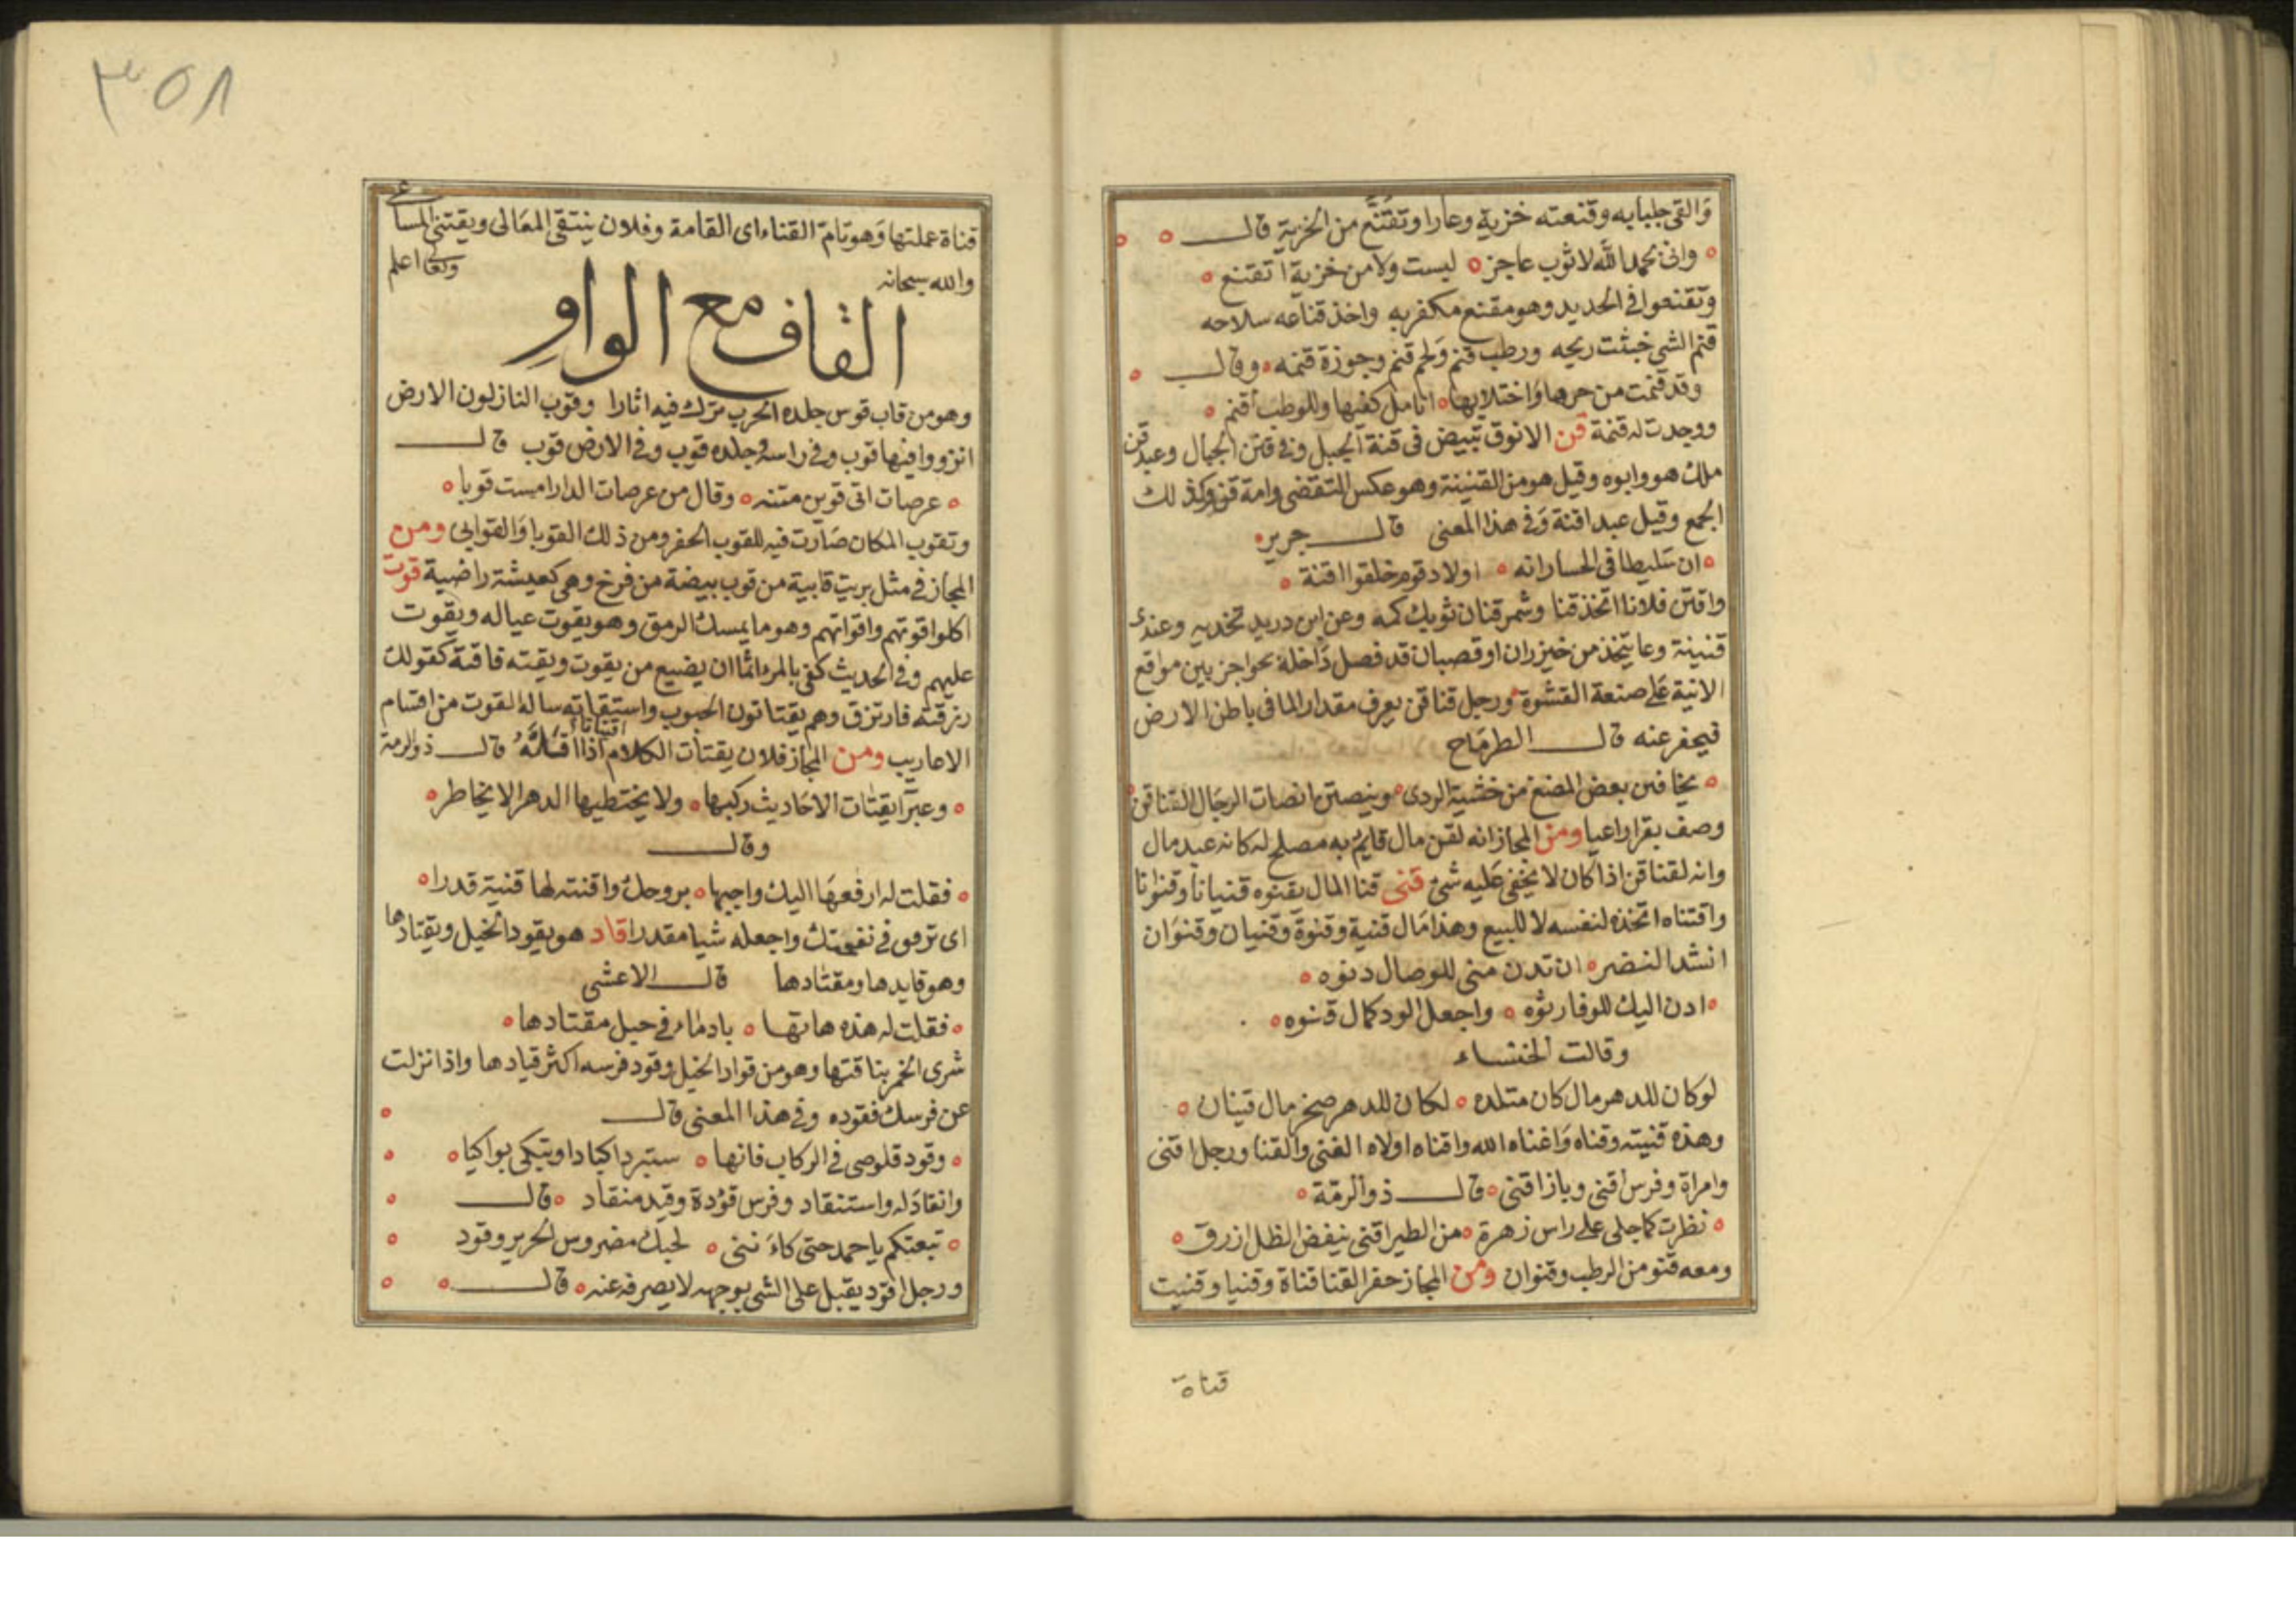 والقى جلبابه وقنعته خزية وعارا وتقنع من الخزية قال
وانى بحمد الله لا ثوب عاجز لبست ولا من خزية اتقنع
وتقنعوا فى الحديد وهو مقنع مكفر به واخذ قناعه سلاحه
قنم الشى خبثت ريحه ورطب قنم ولحم قنم وجوزة قنمه وقال
وقد قنمت من حرها واختلابها انامل كفيها وللوطب أقنم
ووجدت له قنمة قن الانوق تبيض فى قنة الجبل وفى قنن الجبال وعبد قن
ملك هو وابوه وقيل هو من القنينة وهو عكس التقضى وامة قن وكذلك
الجمع وقيل عبد اقنة وفى هذا المعنى قال جرير
ان سليطا فى الخسار انه اولاد قوم خلقوا اقنة
واقتن فلانا اتخذ قنا وشمر قنان ثوبك كمه وعن ابن دريد تخديه وعندى
قنينة وعا يتخذ من خيزران او قصبان قد فصل داخله بحواجز بين مواقع
الانية على صنعة القشوة ورجل قناقن يعرف مقدار الما فى باطن الارض
فيحفر عنه قال الطرماح
يخافتن بعض المضغ من خشية الردى وينصتن انصات الرجال القناقن
وصف بقرا راعيا ومن المجاز انه لقن مال قايم به مصلح له كانه عبد مال
وانه لقناقن اذا كان لا يخفى عليه شئ قنى قنا المال يقنوه قنيانا وقنوانا
واقتناه اتخذه لنفسه لا للبيع وهذا مال قنية وقنوة وقنيان وقنوان
انشد النضر ان تدن منى للوصال دنوه
ادن اليك للوفا رتوه واجعل الود كمال قنوه
وقالت الخنساء
لو كان للدهر مال كان متلده لكان للدهر صخر مال قنيان
وهذه قنيته وقناه واغناه الله واقناه اولاه الغنى والقنا ورجل اقنى
وامراة وفرس اقنى وباز اقنى قال ذو الرمة
نظرت كما جلى على راس زهرة من الطير اقنى ينفض الظل ازرق
ومعه قنو من الرطب وقنوان ومن المجاز حفر القنا قناة وقنيا وقنيت
قناة
٣٥٨
قناة عملتها وهو تام القناة اى القامة وفلان ينتقى المعالى ويقتنى المساعى
والله سبحانه وتعالى اعلم
القاف مع الواو
وهو من قاب قوس جلده الجرب ترك فيه اثارا وقوب النازلون الارض
اثروا فيها قوب وفى راسه وجلده قوب وفى الارض قوب قال
عرصات اتى قوبن متنه وقال من عرصات الدار امست قوبا
وتقوب المكان صارت فيه للقوب الحفر ومن ذلك القوبا والقوابى ومن
المجاز فى مثل بريت قابية من قوب بيضة من فرخ وهى كعيشة راضية قوت
اكلوا قوتهم واقواتهم وهو ما يمسك الرمق وهو يقوت عياله ويقوت
عليهم وفى الحديث كفى بالمرء اثما ان يضيع من يقوت ويقته فاقته كقولك
رزقته فارتزق وهم يقتاتون الحبوب واستقاته ساله القوت من اقسام
الاعاريب ومن المجاز فلان يقتات الكلام اقتياتا اذا اقله قال ذو الرمة
وعبرا يقتات الاحاديث ركبها ولا يختطيها الدهر الا يخاطر
وقال
فقلت له ارفعها اليك واحيها بروحك واقتته لها قيتة قدرا
اى ترفق فى نفختك واجعله شيا مقدرا قاد هو يقود الخيل ويقتادها
وهو قايدها ومقتادها قال الاعشى
فقلت له هذه هاتها بادماء فى حبل مقتادها
شرى الخمر بناقتها وهو من قواد الخيل وقود فرسه اكثر قيادها واذا نزلت
عن فرسك فقوده وفى هذا المعنى قال
وقود قلوصى فى الركاب فانها ستبرد اكبادا وتبكى بواكيا
وانقاد له واستنقاد وفرس قؤدة وقيد منقاد قال
تبعتكم يا حمد حتى كاننى لحبك مضروس الجرير وقود
ورجل اقود يقبل على الشى بوجهه لا يصرفه عنه قال